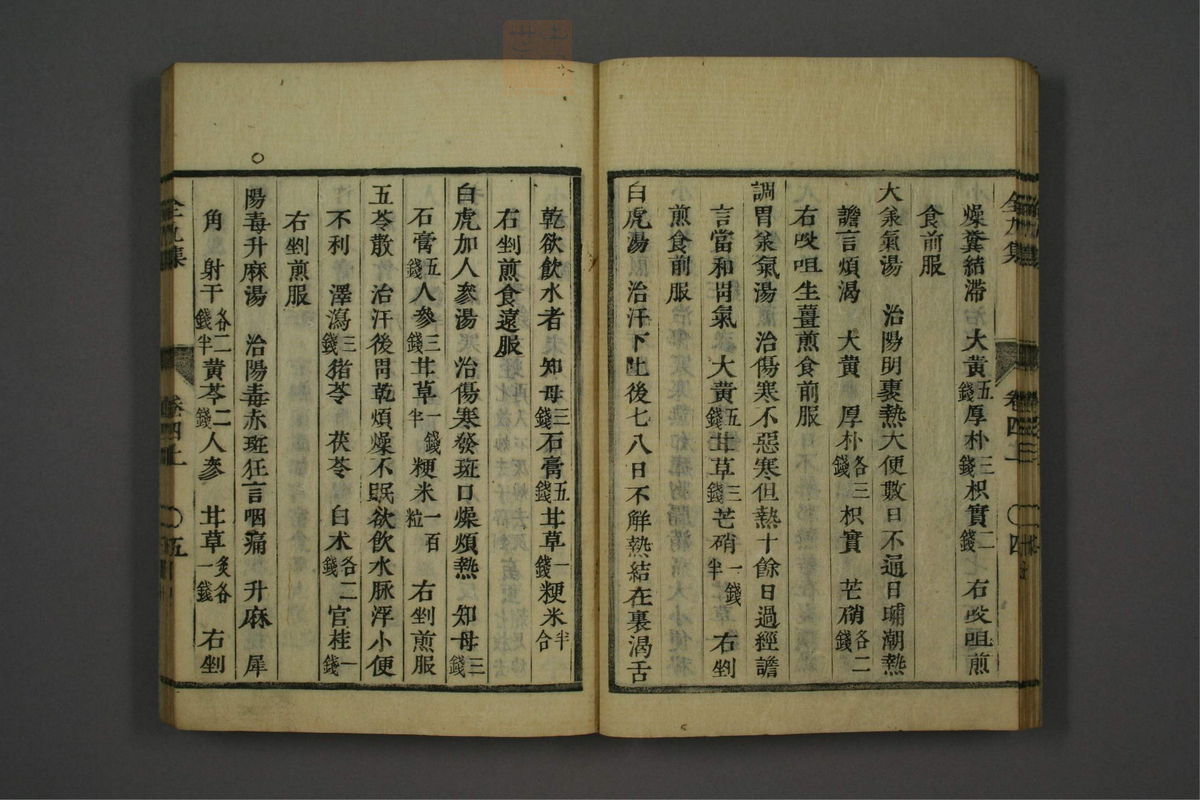 燥糞結滯 大黃五錢厚朴三錢枳實二錢 右㕮咀煎
食前服
大承氣湯 治陽明裏熱大便數日不通日晡潮熱
譫言煩渴 大黃 厚朴各三錢枳實 芒硝各二錢
右㕮咀生薑煎食前服
調胃承氣湯 治傷寒不惡寒但熱十餘日過經譫
言當和胃氣 大黃五錢甘草三錢芒硝一錢半 右剉
煎食前服
白虎湯 治汗下吐後七八日不解熱結在裏渴舌
乾欲飲水者 知母三錢石膏五錢甘草一錢粳米半合
右剉煎食遠服
白虎加人參湯 治傷寒發斑口燥煩熱 知母三錢
石膏五錢人參三錢甘草一錢半粳米一百粒 右剉煎服
五苓散 治汗後胃乾煩燥不眠欲飲水脉浮小便
不利 澤瀉三錢猪苓 茯苓 白朮各二錢官桂一錢
右剉煎服
陽毒升麻湯 治陽毒赤斑狂言咽痛 升麻 犀
角 射干各二錢半黃芩二錢人參 甘草炙各一錢 右剉
全九集 卷四上 〇五
全九集 卷四上 〇四